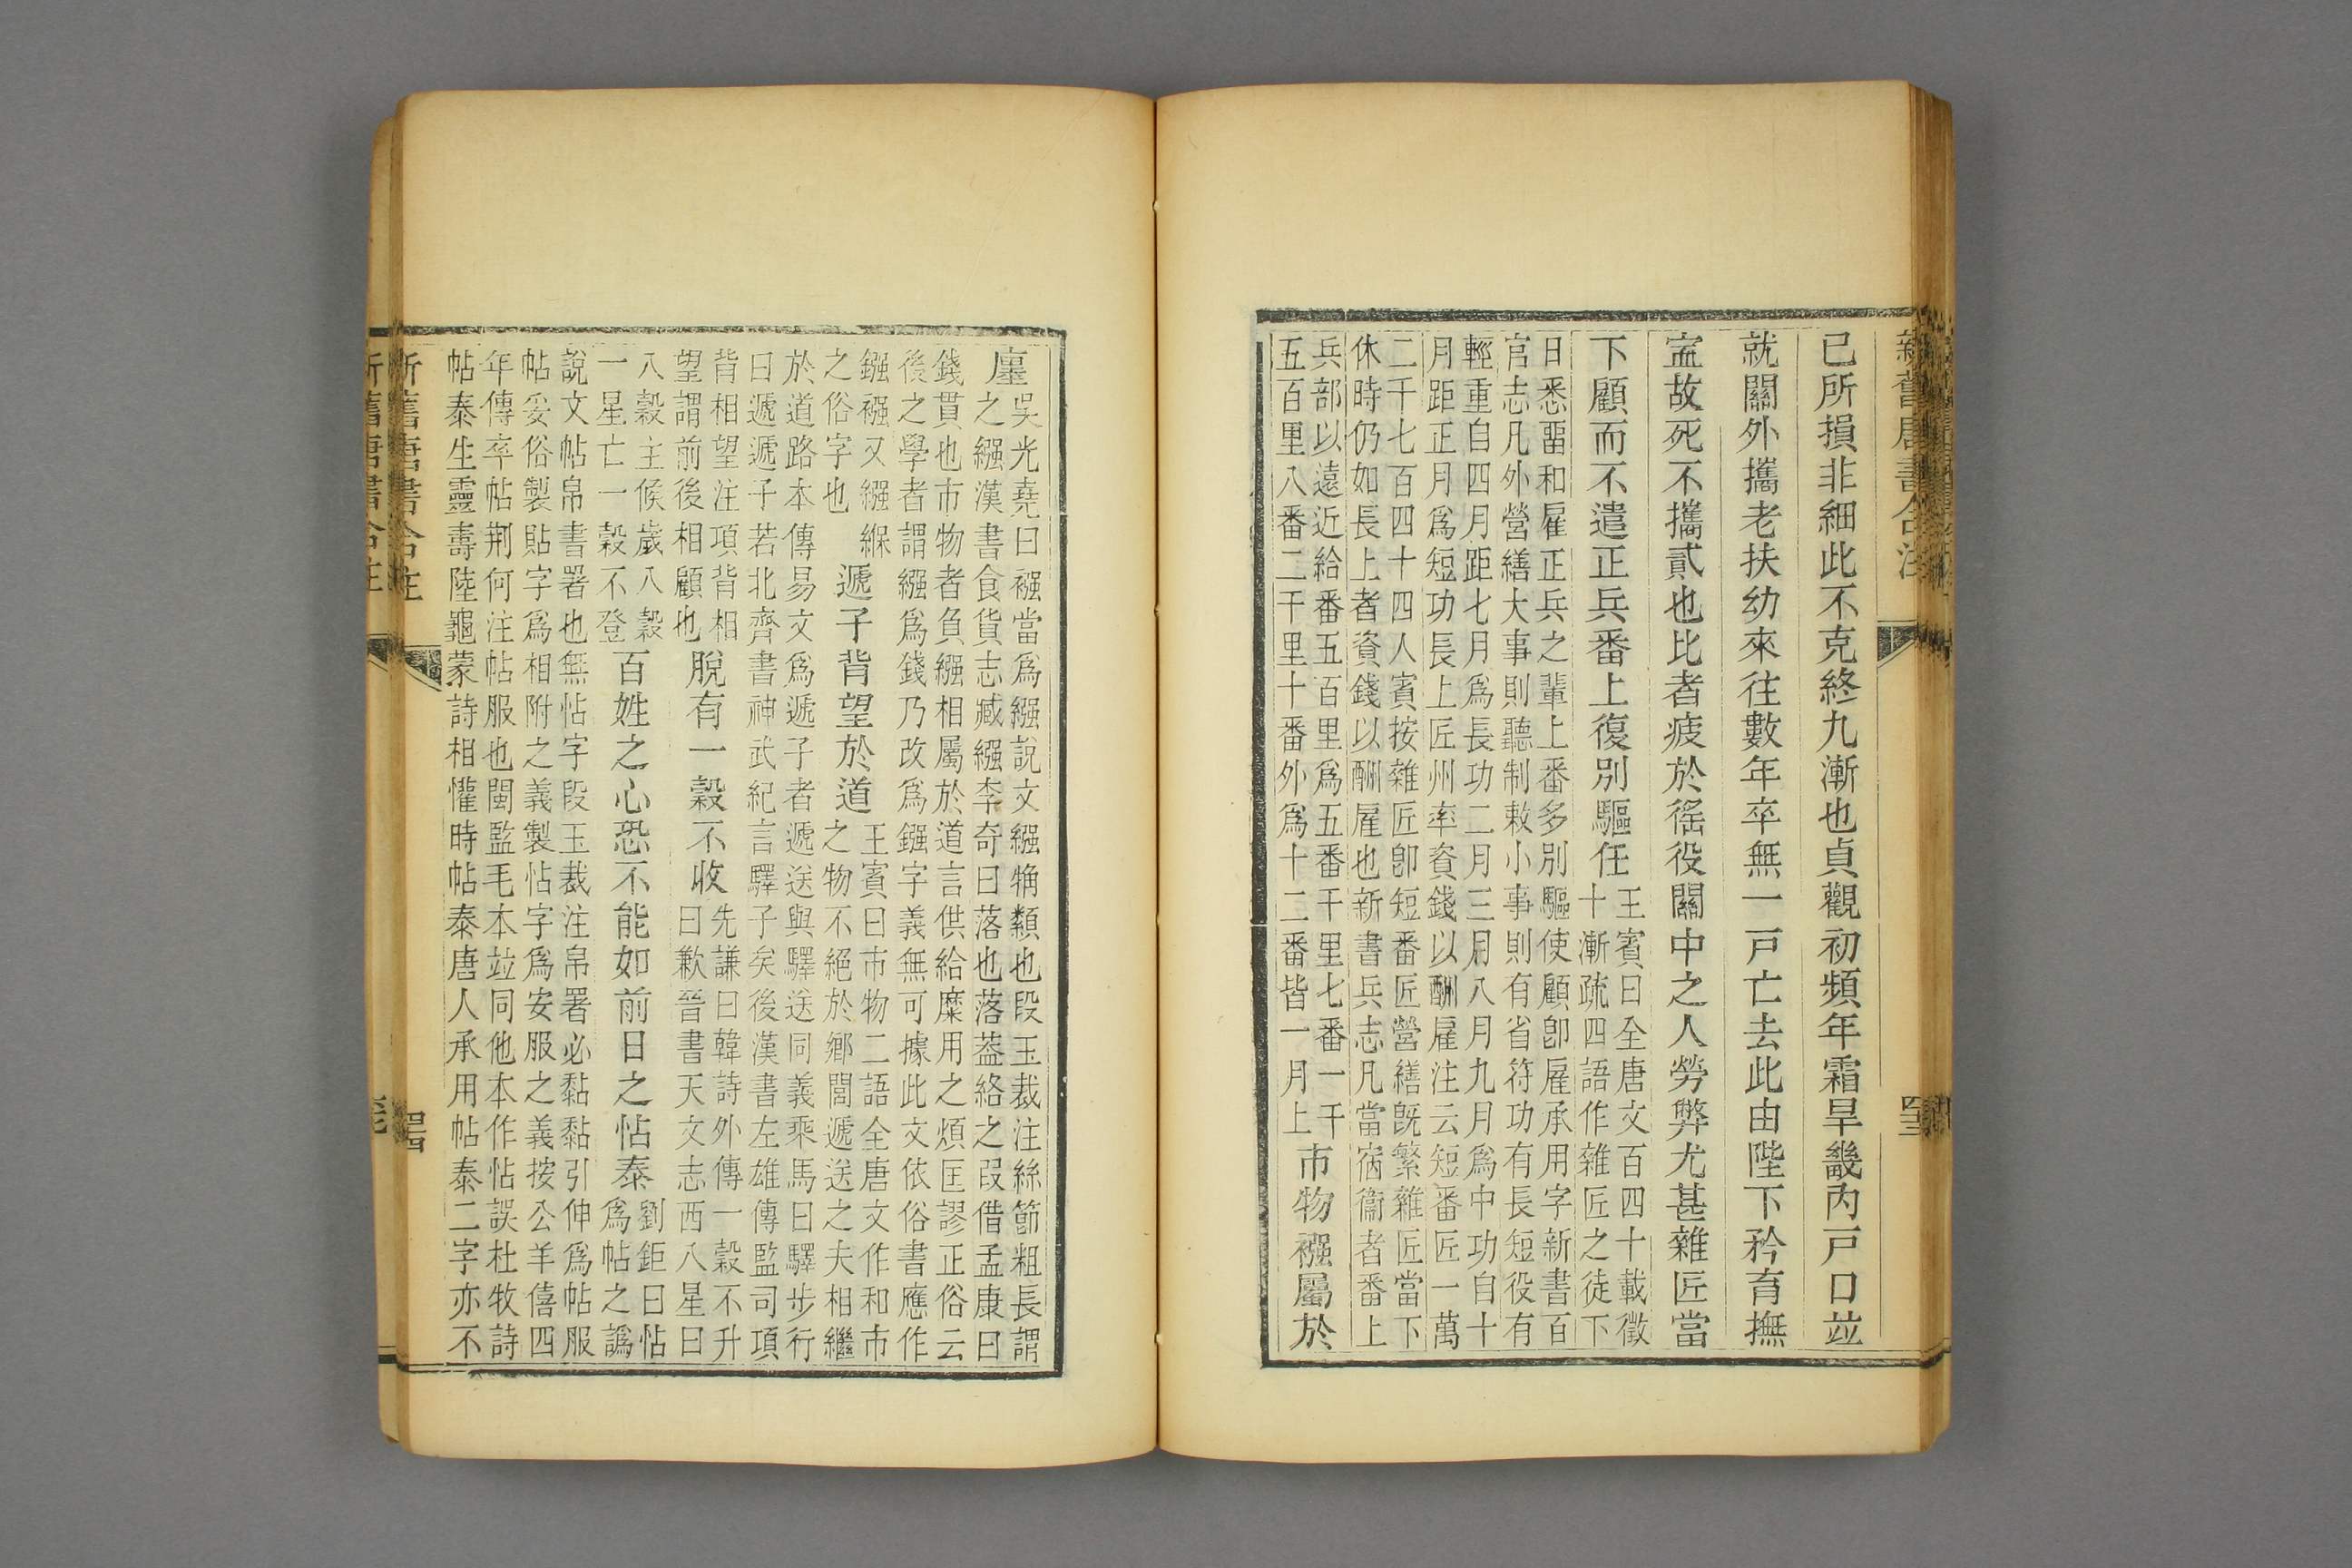 新舊唐書合注
已所損非細此不克終九漸也貞觀初頻年霜旱畿內戶口竝
就關外攜老扶幼來往數年卒無一戶亡去此由陛下矜育撫
寍故死不攜貳也比者疲於徭役關中之人勞弊尤甚雜匠當
下顧而不遣正兵番上復別驅任
王賓曰全唐文百四十載徵
十漸疏四語作雜匠之徒下
日悉畱和雇正兵之輩上番多別驅使顧卽雇承用字新書百
官志凡外營繕大事則聽制敕小事則有省符功有長短役有
輕重自四月距七月爲長功二月三月八月九月爲中功自十
月距正月爲短功長上匠州率資錢以酬雇注云短番匠一萬
二千七百四十四人賓按雜匠卽短番匠營繕旣繁雜匠當下
休時仍如長上者資錢以酬雇也新書兵志凡當宿衞者番上
兵部以遠近給番五百里爲五番千里七番一千
五百里八番二千里十番外爲十二番皆一月上
市物襁屬於
廛
吳光堯曰襁當爲繦說文繦觕纇也段玉裁注絲節粗長謂
之繦漢書食貨志臧繦李奇曰落也落葢絡之叚借孟康曰
錢貫也市物者負繦相屬於道言供給糜用之煩匡謬正俗云
後之學者謂繦爲錢乃改爲鏹字義無可據此文依俗書應作
鏹襁又繦緥
之俗字也
遞子背望於道
王賓曰市物二語全唐文作和市
之物不絕於鄉閭遞送之夫相繼
於道路本傳易文爲遞子者遞送與驛送同義乘馬曰驛步行
曰遞遞子若北齊書神武紀言驛子矣後漢書左雄傳監司項
背相望注項背相
望謂前後相顧也
脫有一穀不收
先謙曰韓詩外傳一穀不升
曰歉晉書天文志西八星曰
八穀主候歲八穀
一星亡一穀不登
百姓之心恐不能如前日之帖泰
劉鉅曰帖
爲帖之譌
說文帖帛書署也無怗字段玉裁注帛署必黏黏引伸爲帖服
帖妥俗製貼字爲相附之義製怗字爲安服之義按公羊僖四
年傳卒帖荆何注帖服也閩監毛本竝同他本作怗誤杜牧詩
帖泰生靈壽陸龜蒙詩相懽時帖泰唐人承用帖泰二字亦不
新舊唐書合注